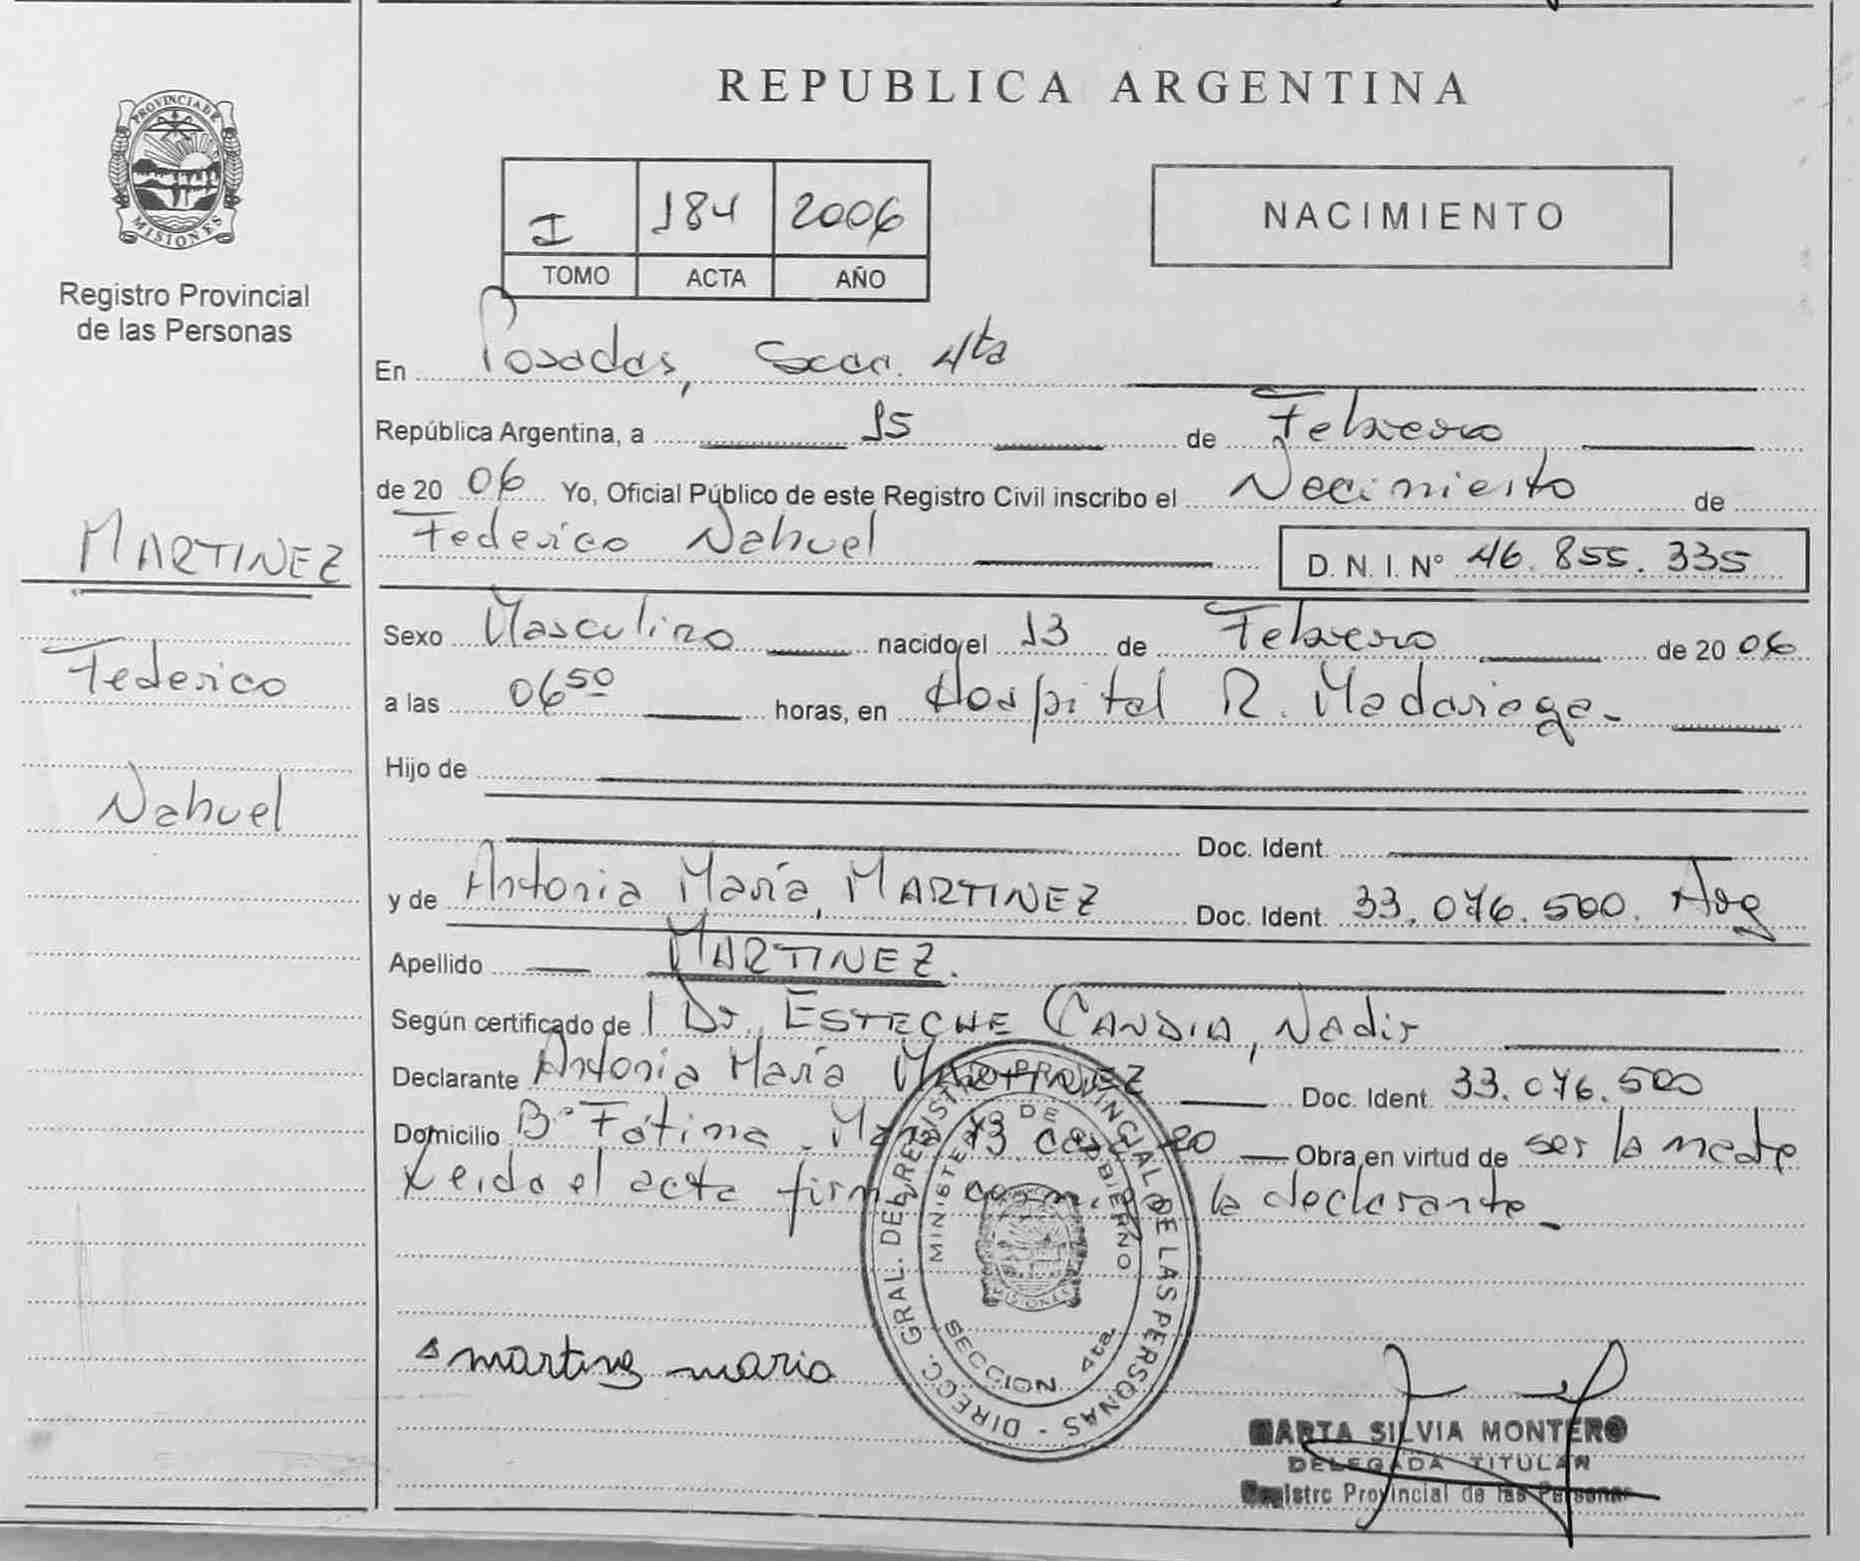 PROVINCIA DE
MISIONES
Registro Provincial
de las Personas
MARTINEZ
Federico
Nahuel
REPUBLICA ARGENTINA
I 184 2006
TOMO ACTA AÑO
NACIMIENTO
En Posadas, Secc. 4ta
República Argentina, a 15 de Febrero
de 2006 Yo, Oficial Público de este Registro Civil inscribo el Nacimiento de
Federico Nahuel D. N. I. N° 46.855.335
Sexo Masculino nacido el 13 de Febrero de 2006
a las 06 50 horas, en Hospital R. Madariaga.-
Hijo de
Doc. Ident.
y de Antonia María, MARTINEZ Doc. Ident. 33.076.500. Arg
Apellido MARTINEZ.
Según certificado de l Dr. ESTECHE CANDIA, Nadir
Declarante Antonia María MARTINEZ Doc. Ident. 33.076.500
Domicilio B° Fátima. Manz 13 casa 20 Obra en virtud de ser la madre
Leida el acta firma conmigo la declarante.-
DIRECC. GRAL. DEL REGISTRO PROVINCIAL DE LAS PERSONAS -
MINISTERIO DE GOBIERNO
MISIONES
SECCION 4ta.
martinz maria
MARTA SILVIA MONTERO
DELEGADA TITULAR
Registro Provincial de las Personas